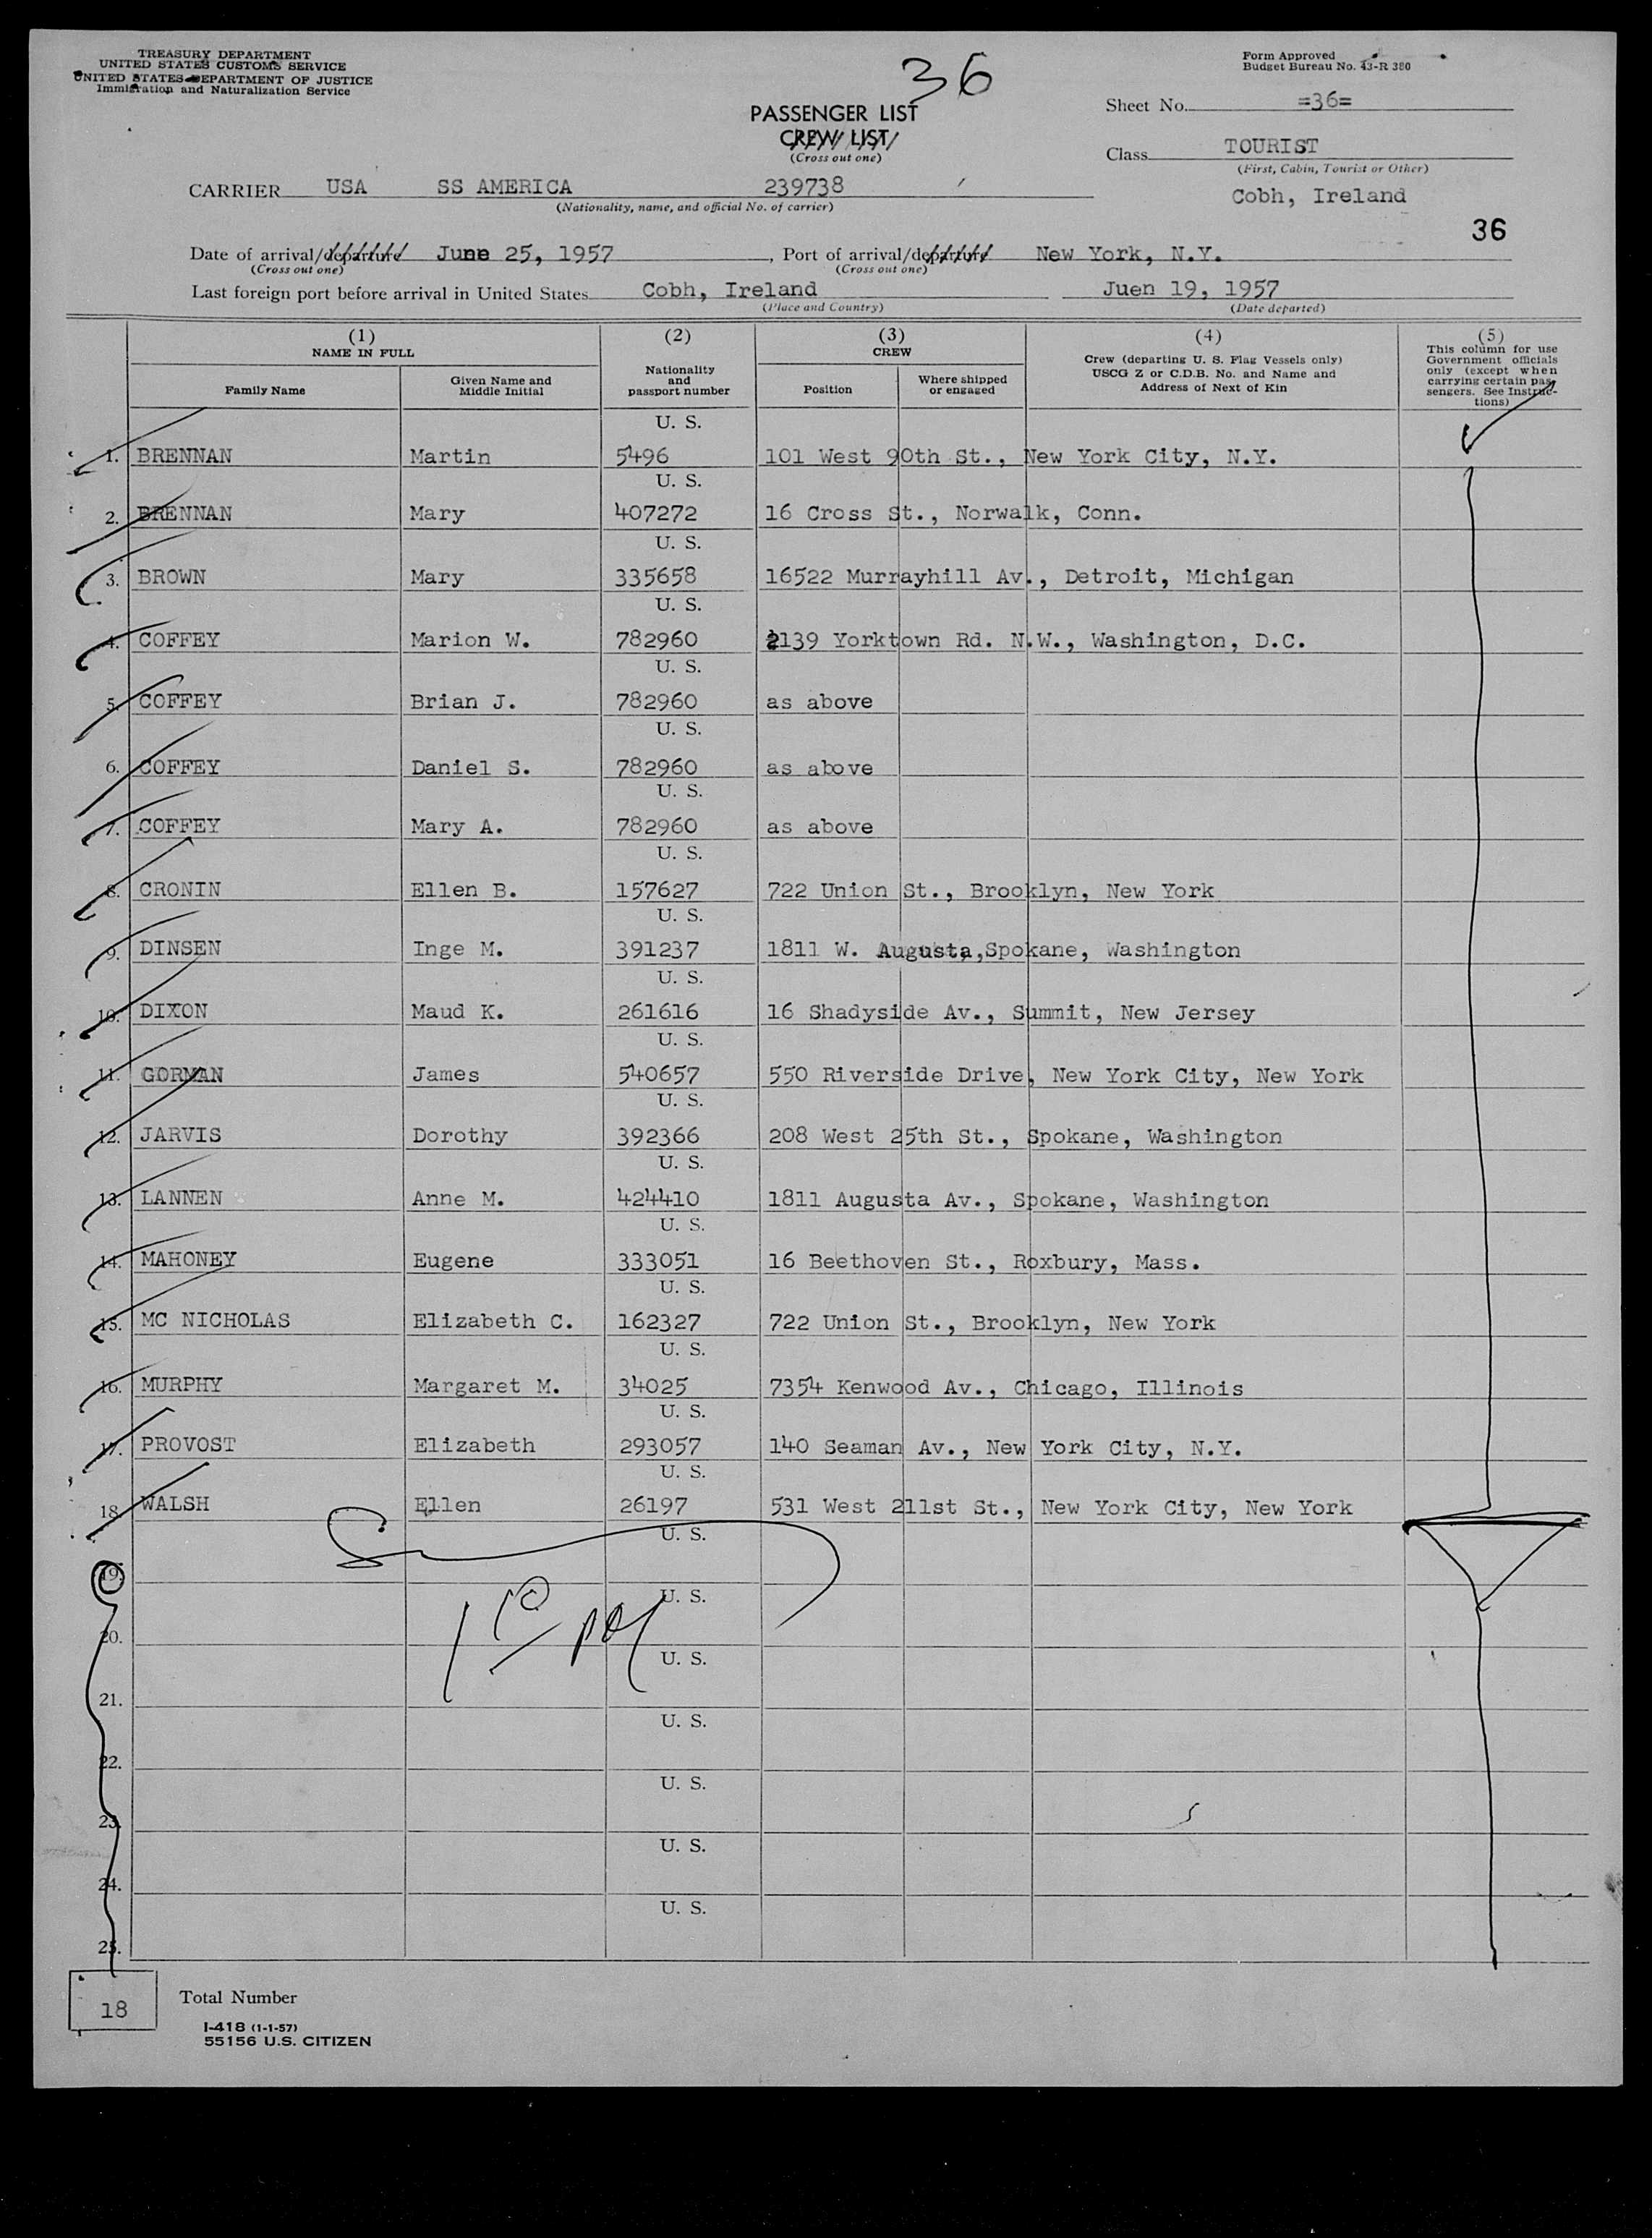 TREASURY DEPARTMENT
UNITED STATES CUSTOMS SERVICE
UNITED STATES DEPARTMENT OF JUSTICE
Immigration and Naturalization Service
36
Form Approved
Budget Bureau No. 43-R 380
PASSENGER LIST
CREW LIST
(Cross out one)
Sheet No. =36=
Class TOURIST
(First, Cabin, Tourist or Other)
CARRIER USA SS AMERICA 239738
(Nationality, name, and official No. of carrier)
Cobh, Ireland
36
Date of arrival/departure June 25, 1957, Port of arrival/departure New York, N.Y.
(Cross out one) (Cross out one)
Last foreign port before arrival in United States Cobh, Ireland Juen 19, 1957
(Place and Country) (Date departed)
(1) NAME IN FULL
Family Name
Given Name and Middle Initial
(2) Nationality and passport number
(3) CREW
Position
Where shipped or engaged
(4) Crew (departing U. S. Flag Vessels only) USCG Z or C.D.B. No. and Name and Address of Next of Kin
(5) This column for use Government officials only (except when carrying certain passengers. See Instructions)
U. S.
1. BRENNAN Martin 5496 101 West 90th St., New York City, N.Y.
U. S.
2. BRENNAN Mary 407272 16 Cross St., Norwalk, Conn.
U. S.
3. BROWN Mary 335658 16522 Murrayhill Av., Detroit, Michigan
U. S.
4. COFFEY Marion W. 782960 2139 Yorktown Rd. N.W., Washington, D.C.
U. S.
5. COFFEY Brian J. 782960 as above
U. S.
6. COFFEY Daniel S. 782960 as above
U. S.
7. COFFEY Mary A. 782960 as above
U. S.
8. CRONIN Ellen B. 157627 722 Union St., Brooklyn, New York
U. S.
9. DINSEN Inge M. 391237 1811 W. Augusta, Spokane, Washington
U. S.
10. DIXON Maud K. 261616 16 Shadyside Av., Summit, New Jersey
U. S.
11. GORMAN James 540657 550 Riverside Drive, New York City, New York
U. S.
12. JARVIS Dorothy 392366 208 West 25th St., Spokane, Washington
U. S.
13. LANNEN Anne M. 424410 1811 Augusta Av., Spokane, Washington
U. S.
14. MAHONEY Eugene 333051 16 Beethoven St., Roxbury, Mass.
U. S.
15. MC NICHOLAS Elizabeth C. 162327 722 Union St., Brooklyn, New York
U. S.
16. MURPHY Margaret M. 34025 7354 Kenwood Av., Chicago, Illinois
U. S.
17. PROVOST Elizabeth 293057 140 Seaman Av., New York City, N.Y.
U. S.
18. WALSH Ellen 26197 531 West 211st St., New York City, New York
U. S.
19.
U. S.
20.
U. S.
21.
U. S.
22.
U. S.
23.
U. S.
24.
U. S.
25.
18 Total Number
I-418 (1-1-57)
55156 U.S. CITIZEN